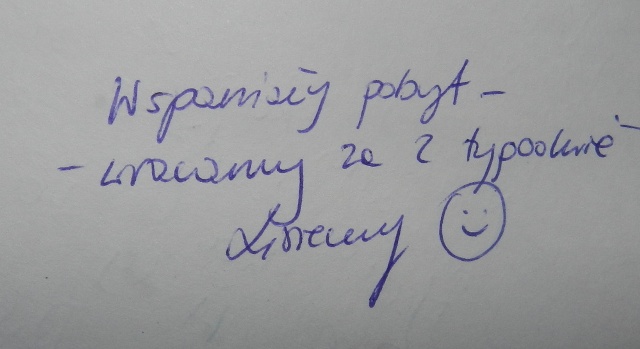 Wspaniały pobyt -
- wracamy za 2 tygodnie -